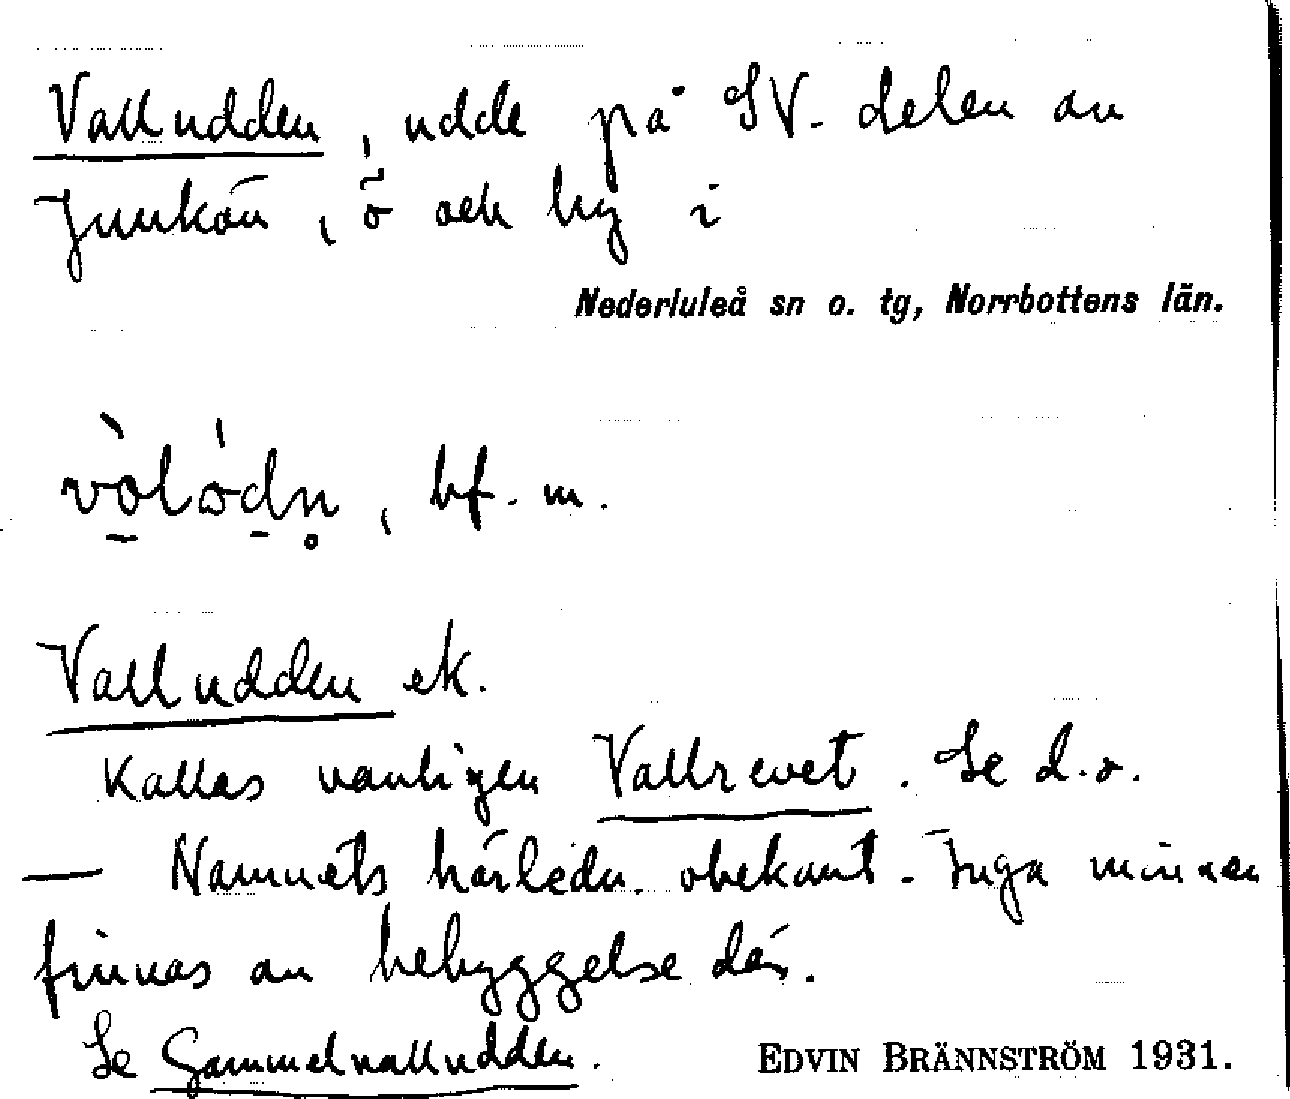 Valludden, udde på SV. delen av
Junkön, ö och by i
Nederluleå sn o. tg, Norrbottens län.
vò̱lóḏn̥, bf. m.
Valludden ek.
Kallas vanligen Vallrevet. Se d.o.
— Namnets härledn. obekant. Inga minnen
finnas av bebyggelse där.
Se Gammelvalludden.
EDVIN BRÄNNSTRÖM 1931.